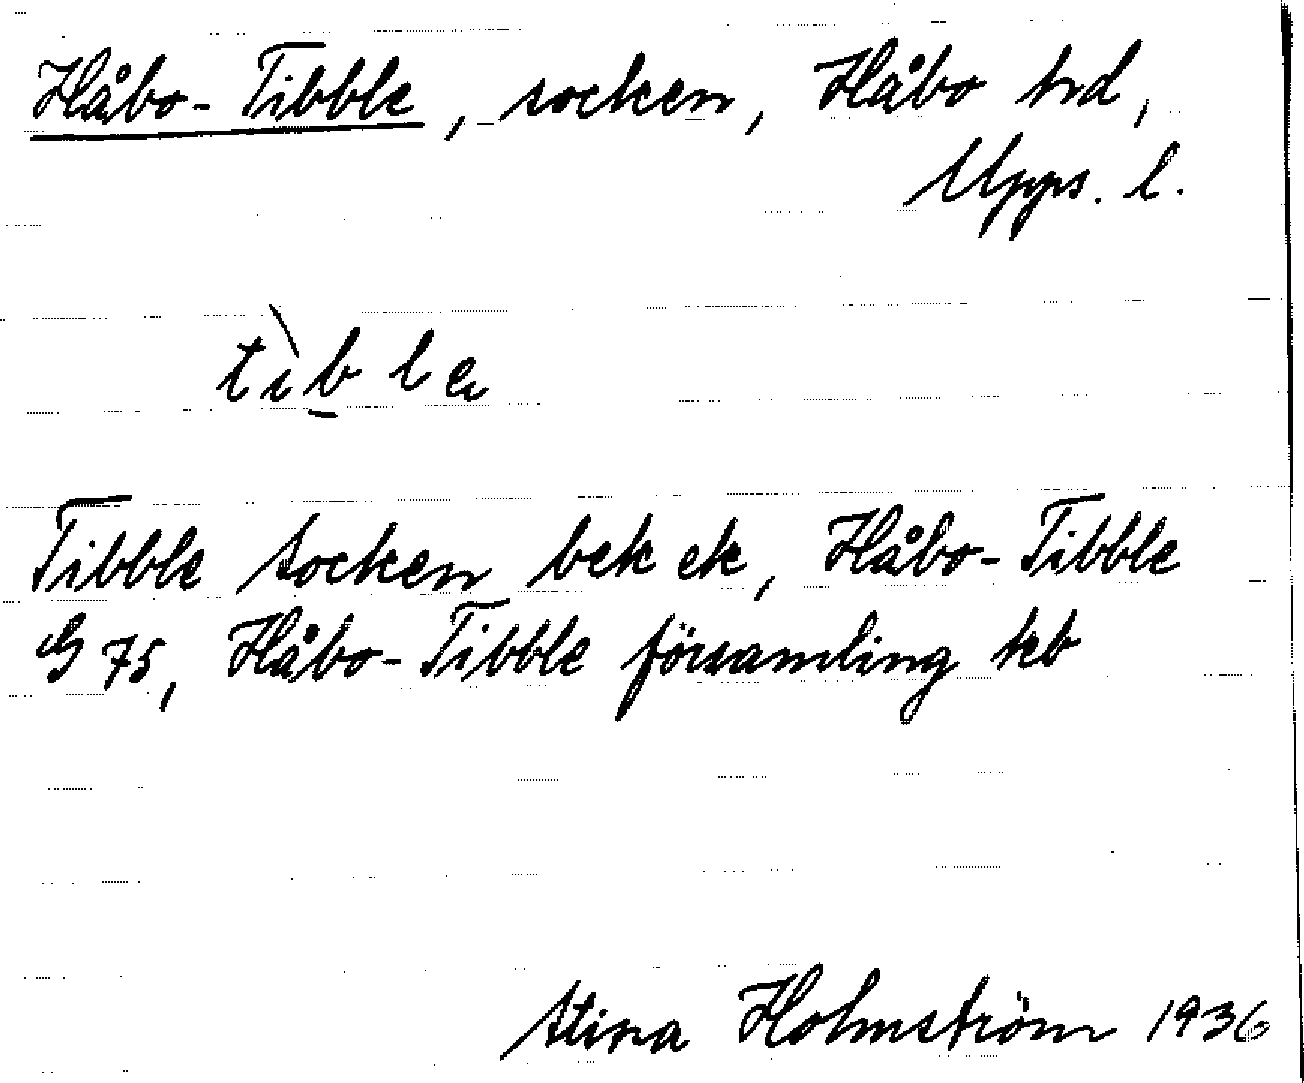 Håbo-Tibble, socken, Håbo hrd,
Upps. l.
tìb̲le
Tibble socken bek ek, Håbo-Tibble
G 75, Håbo-Tibble församling kb
Stina Holmström 1936